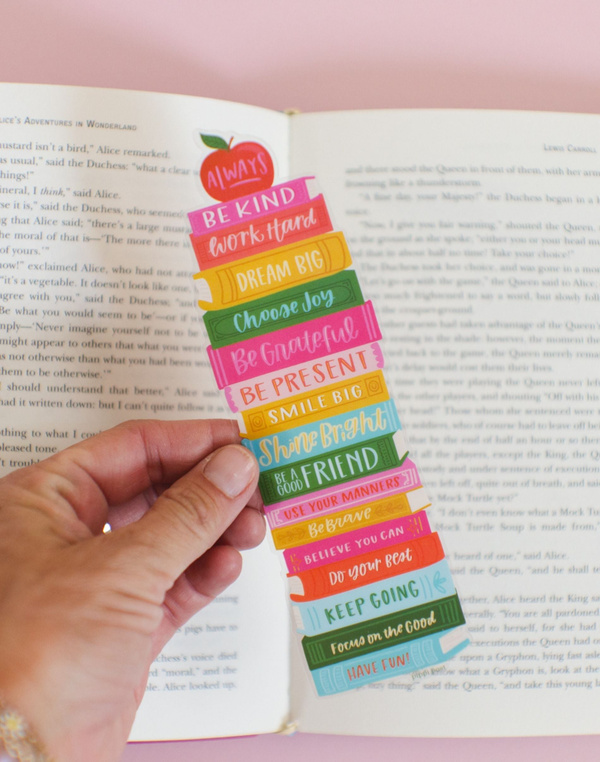 ICE'S ADVENTURES IN WONDERLAND
ustard isn't a bird," Alice remarked.
as usual," said the Duchess: "what a clear
hings!"
ineral, I think," said Alice.
se it is," said the Duchess, who seemed
g that Alice said; "there's a large mustard
he moral of that is—'The more there
of yours.'"
ow!" exclaimed Alice, who had not
"it's a vegetable. It doesn't look like one,
agree with you," said the Duchess;
'Be what you would seem to be'—or if
mply—'Never imagine yourself not to be
might appear to others that what you were
as not otherwise than what you had been
them to be otherwise.'"
should understand that better," Alice said
had it written down: but I can't quite follow it
othing to what I could
pleased tone.
t troubl
pigs have to
chess's voice died
"moral," and the
le. Alice looked up.
ALWAYS
BE KIND
WORK HARD
DREAM BIG
Choose Joy
Be Grateful
BE PRESENT
SMILE BIG
Shine Bright
BE A GOOD FRIEND
USE YOUR MANNERS
Be Brave
BELIEVE YOU CAN
DO YOUR BEST
KEEP GOING
FOCUS ON THE GOOD
HAVE FUN!
LEWIS CARROLL
and there stood the Queen in front of them, with her arm
frowning like a thunderstorm.
"A fine day, your Majesty!" the Duchess began in a l
voice.
"Now, I give you fair warning," shouted the Queen,
on the ground as she spoke; "either you or your head mu
and that in about half no time! Take your choice!"
The Duchess took her choice, and was gone in a mo
"Let's go on with the game," the Queen said to Alice.
much frightened to say a word, but slowly foll
back to the croquet-ground.
other guests had taken advantage of the Queen's
resting in the shade: however, the moment
back to the game, the Queen merely remar
delay would cost them their lives.
they were playing the Queen never left
players, and shouting "Off with his
head!" Those whom she sentenced were
soldiers, who of course had to leave
so that by the end of half an hour or so the
all the players, except the King, the Qu
and under sentence of execution.
left off, quite out of breath, and said
Mock Turtle yet?"
"I don't even know what a Mock T
Mock Turtle Soup is made from,"
heard of one," said Alice.
and he shall
together, Alice heard the King sa
"You are all pardoned
said to herself, for she had
executions the Queen had o
upon a Gryphon, lying fast asle
know what a Gryphon is, look at the
thing!" said the Queen, "and take this young l